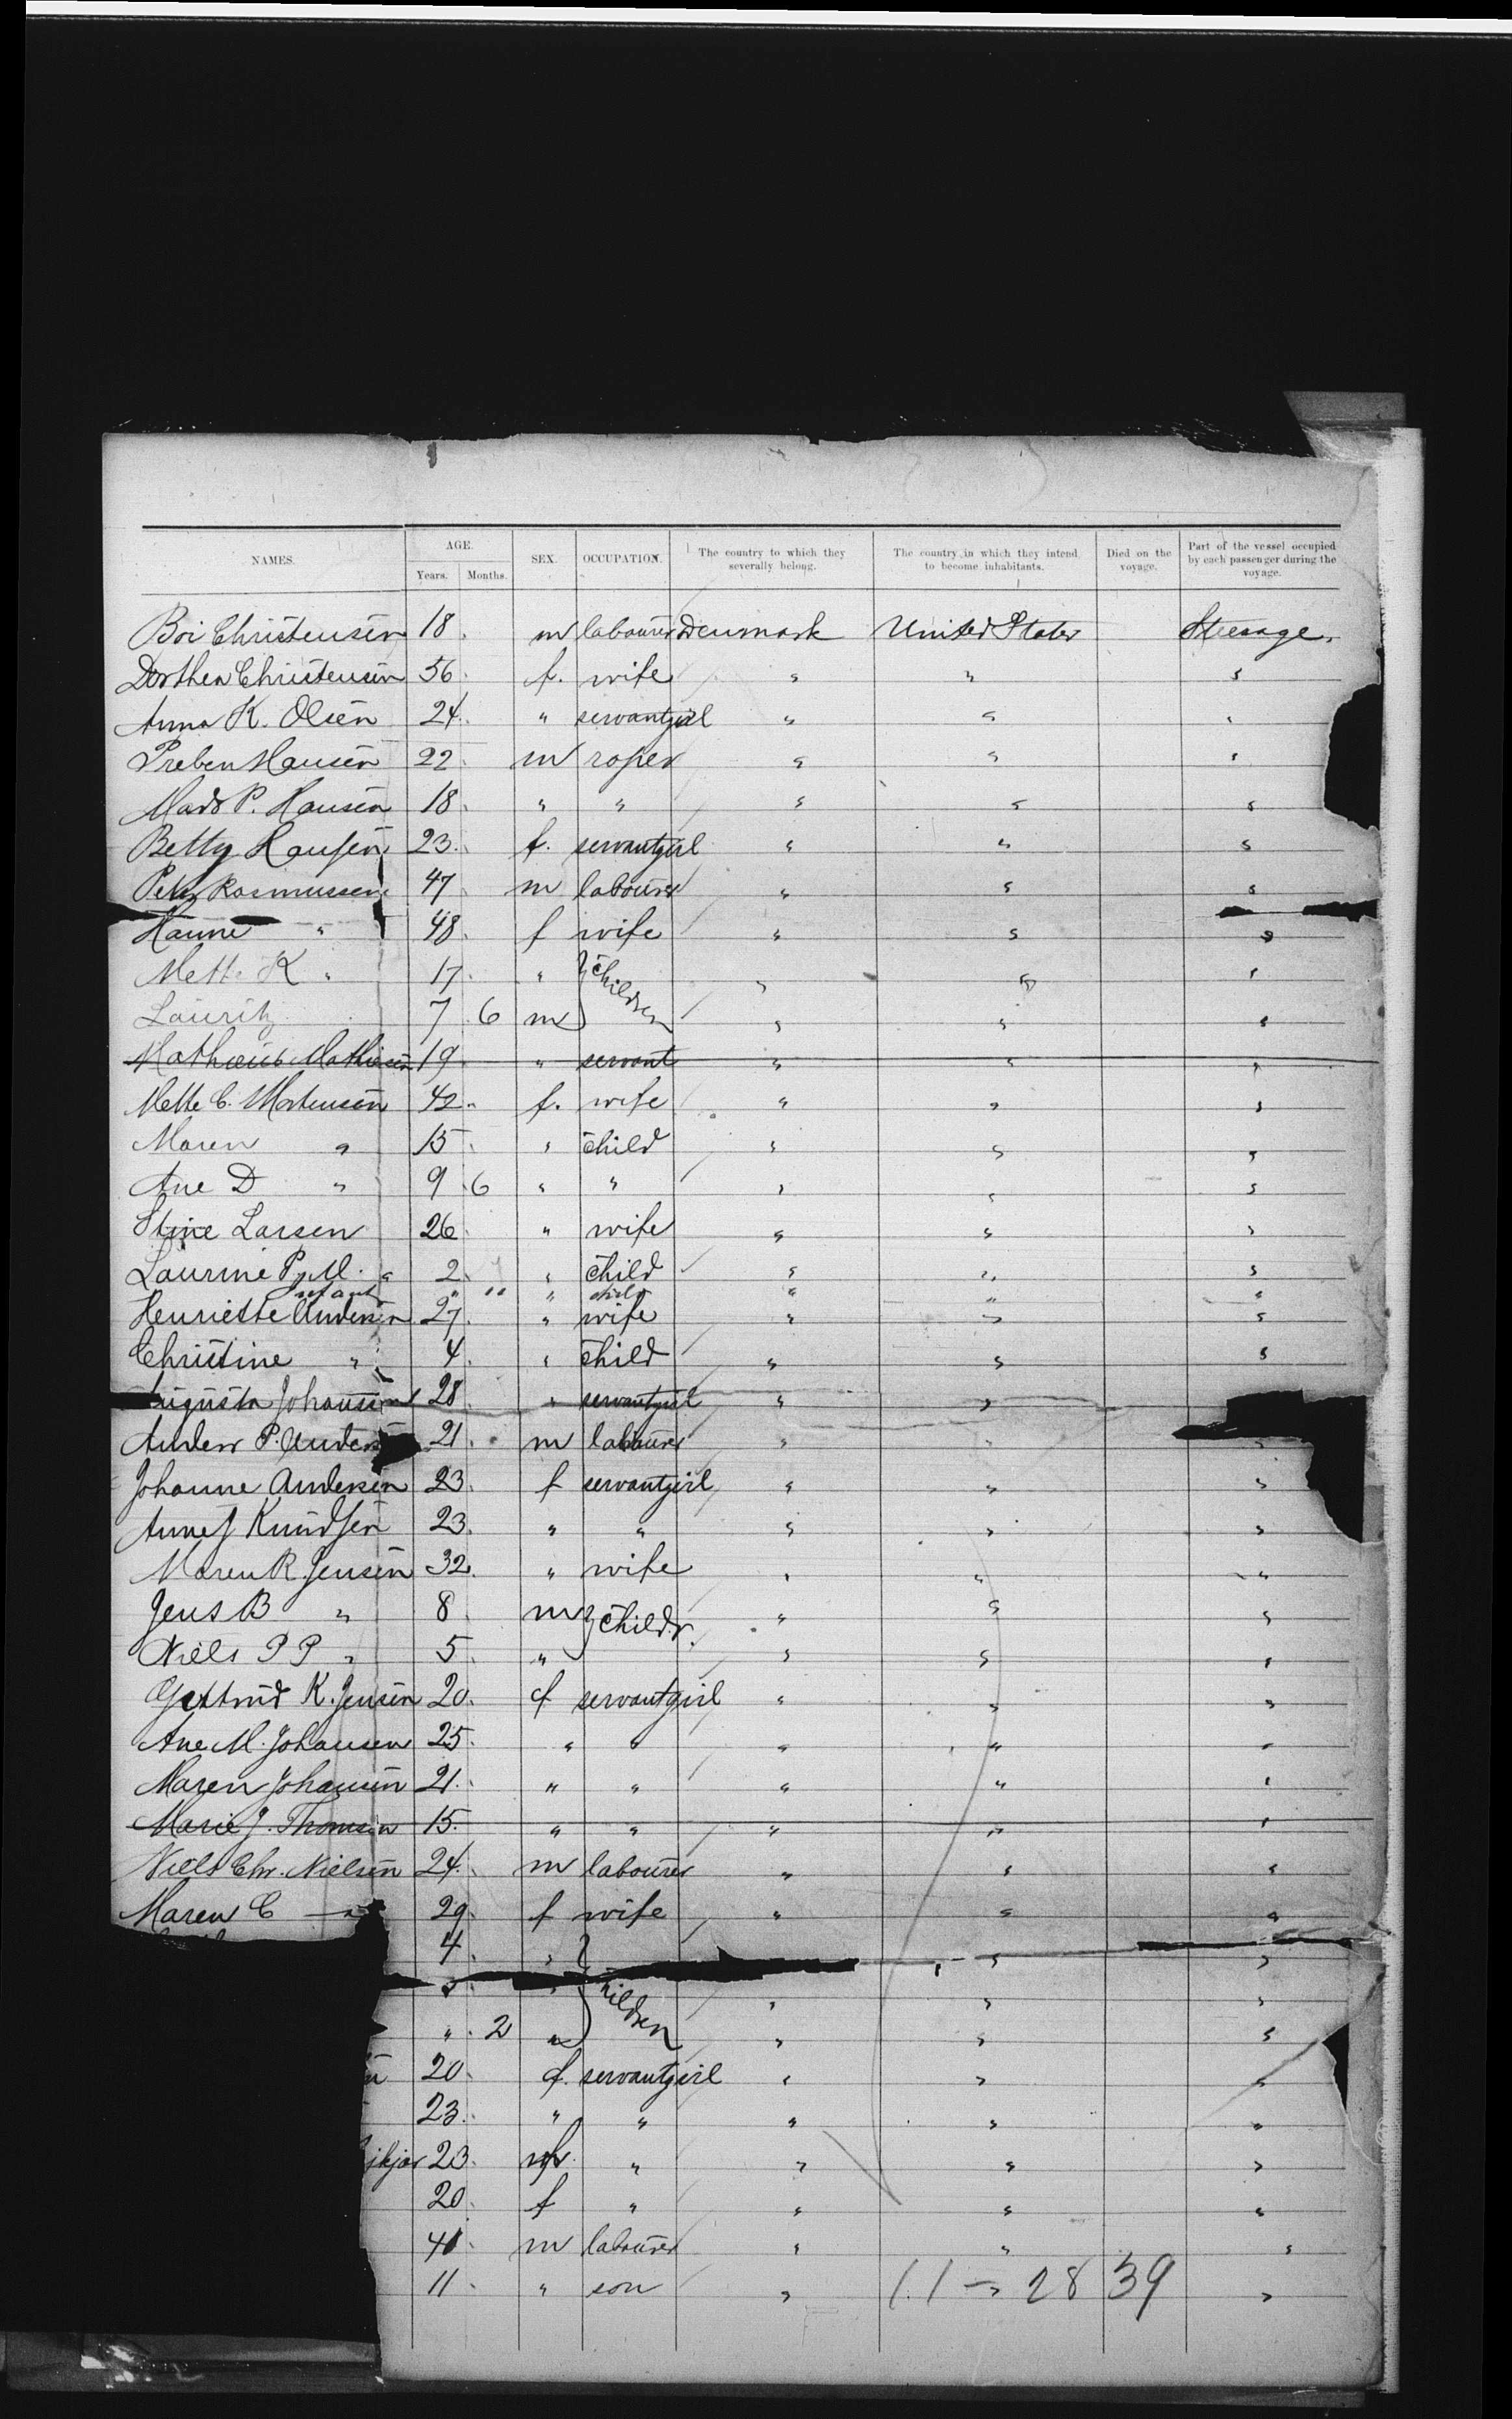 NAMES. AGE. SEX. OCCUPATION. The country to which they severally belong. The country in which they intend to become inhabitants. Died on the voyage. Part of the vessel occupied by each passenger during the voyage.
Years. Months.
Boi Christensen 18 m labourer Denmark United States Steerage.
Dorthea Christensen 56 f. wife " " "
Anna K. Olsen 24 " servantgirl " " "
Preben Hansen 22 m roper " " "
Mads P. Hansen 18 " " " " "
Betty Hansen 23 f. servantgirl " " "
Peter Rasmussen 47 m labourer " " "
Hanne " 48 f wife " " "
Mette K " 17 " children " " "
Lauritz 7 6 m " " "
Mathæus Mathiesen 19 " servant " " "
Mette C. Mortensen 42 f. wife " " "
Maren " 15 " child " " "
Ane D " 9 6 " " " " "
Stine Larsen 26 " wife " " "
Laurine P. M. " 2 " child " " "
Infant " " " child " " "
Henriette Andersen 27 " wife " " "
Christine " 4 " child " " "
Augusta Johansen 28 " servantgirl " " "
Anders P. Anders 21 m labourer " " "
Johanne Andersen 23 f servantgirl " " "
Anne J Knudsen 23 " " " " "
Maren R. Jensen 32 " wife " " "
Jens B " 8 m childr. " " "
Niels P P " 5 " " " "
Gjertrud K. Jensen 20 f servantgirl " " "
Ane M. Johansen 25 " " " " "
Maren Johansen 21 " " " " "
Marie J. Thomsen 15 " " " " "
Niels Chr. Nielsen 24 m labourer " " "
Maren C " 29 f wife " " "
4 " " "
" hildren " " "
" 2 " " " "
n 20 f. servantgirl " " "
23 " " " " "
jkjær 23 " " " "
20 f " " " "
41 m labourer " " "
11 " son " 11 - 28 39 "